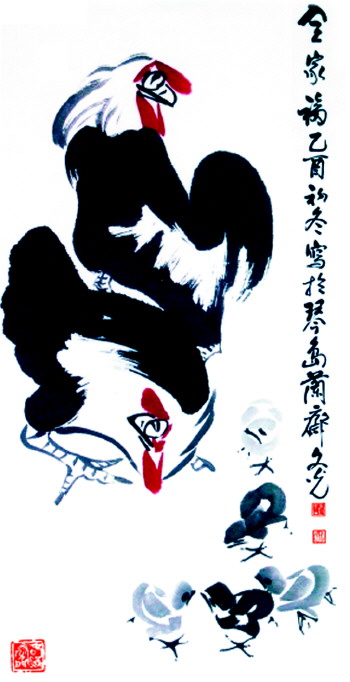 全家福乙酉初冬寫於琴島蘭齋文光